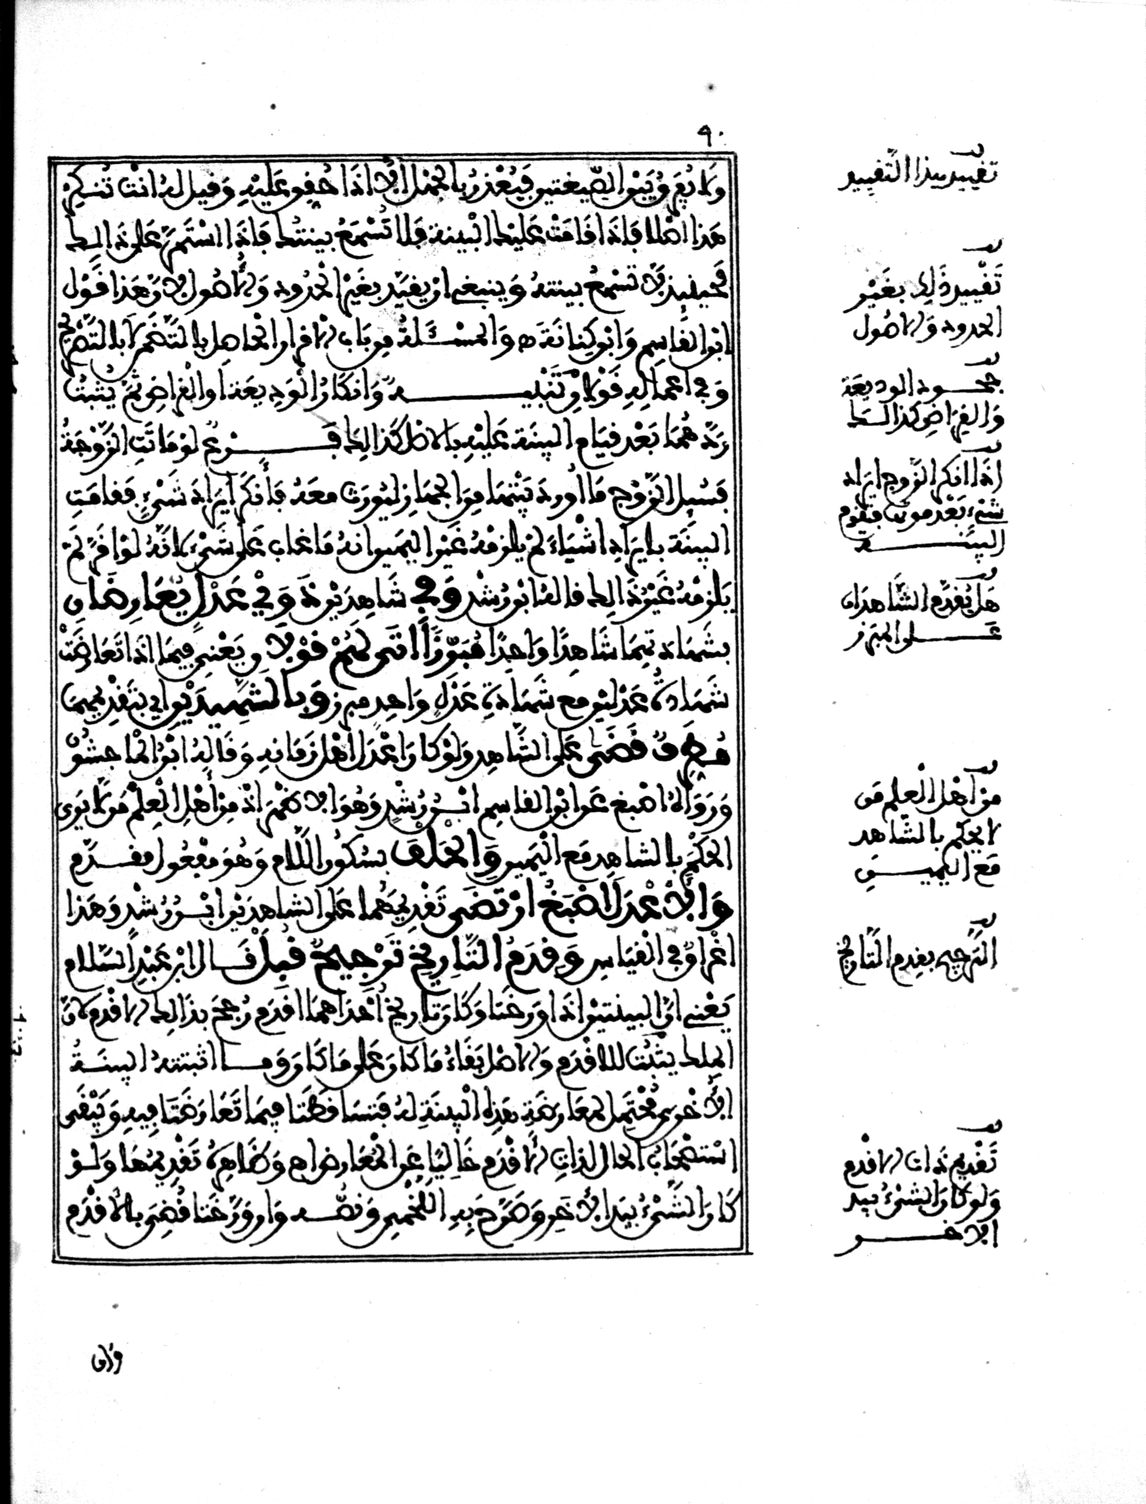 ٩٠
ولا يفرق بين الصيغتين فيعذر بالجهل إلا إذا حقق عليه وقيل له أنت تنكر
هذا أصلا فإذا قامت عليك البينة فلا تسمع بينتك فإذا استمر على ذلك
فحينئذ لا تسمع بينته وينبغي أن يقيد بغير الحدود والأصول لأن هذا قول
ابن القاسم وابن كنانة اه والمسئلة من باب الإقرار الحاصل بالتضمن لا بالتصريح
وفي اعماله قولان تنبيه وانكار الوديعة أو القراض ثم يثبت
ردهما بعد قيام البينة عليه بالأصل كذلك فرع لو ماتت الزوجة
فسئل الزوج ما أورد بيتها من الجهاز ليورث معه فأنكر إيراد شيء فقامت
البينة بإيراد أشياء لم يلزمه غير اليمين انه ما غاب على شيء لأنه لو أقر لم
يلزمه غير ذلك قاله ابن رشد وفي شاهدين ذوي عدل يعارضان
بشهادتهما شاهدا واحدا مبرزا أتى لهم قولان يعني فيما إذا تعارضت
شهادة عدلين مع شهادة عدل واحد مبرز وبالشهيدين أي بتقديمهما
مطرف قضى على الشاهد ولو كان أعدل أهل زمانه وقاله ابن الماجشون
ورواه اصبغ عن ابن القاسم ابن رشد وهو الأظهر إذ من أهل العلم من لا يرى
الحكم بالشاهد مع اليمين والحلف بسكون اللام وهو مفعول مقدم
والأعدل اصبغ ارتضى تقديمهما على الشاهدين ابن رشد وهذا
اغراق في القياس وقدم التاريخ ترجيح قبل قال ابن عبد السلام
يعني ان البينتين إذا ورختا وكان تاريخ احداهما اقدم رجحت بذلك الأقدم لأن
الملك يثبت للأقدم والأصل بقاء ما كان على ما كان وما اثبتته البينة
الأخرى محتمل لمعارضة هذه البينة له فتساقطتا فيما تعارضتا فيه ويبقى
استصحاب الحال لذات الأقدم خاليا عن المعارض اه وظاهره تقديمها ولو
كان الشيء بيد الآخر وصرح به اللخمي ونصه وان ورختا قضي بالأقدم
وان
تقييد هذا التقييد
تقييد ذلك بغير
الحدود والأصول
جحود الوديعة
والقراض كذلك
إذا انكر الزوج إيراد
شيء بعد موت فتقوم
البينة
هل يقدم الشاهدان
على المبرز
من أهل العلم من
لا يحكم بالشاهد
مع اليمين
الترجيح بقدم التاريخ
تقديم ذات الأقدم
ولو كان الشيء بيد
الآخر